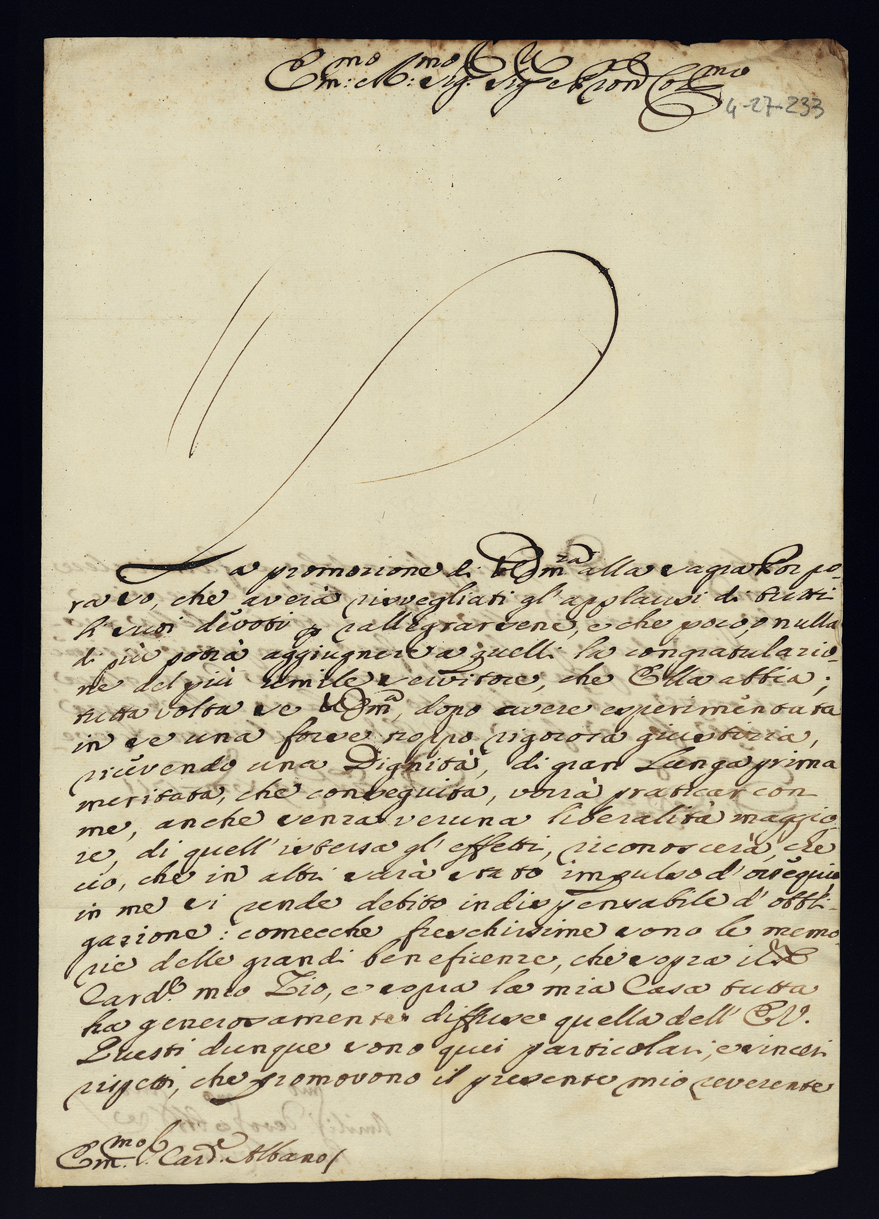 Em:mo e R:mo Sig.r Sig.r e Pron Col.mo
4-27-233
La promozione di V Em.za alla sagra Porpo-
ra so, che averà risvegliati gl'applausi di tutti
li suoi divoti p rallegrarsene, e che poco, o nulla
di più potrà aggiugnere a quelli la congratulazio-
ne del più umile servitore, che Ella abbia;
tutta volta se V Em.a, dopo avere esperimentata
in se una forse troppo rigorosa giustizia,
ricevendo una Dignità, di gran Lunga prima
meritata, che conseguita, vorrà praticar con
me, anche senza veruna liberalità maggio-
re, di quell'istessa gl'effetti, riconoscerà, che
ciò, che in altri sarà stato impulso d'ossequio
in me si rende debito indispensabile d'obbli-
gazione: comecche freschissime sono le memo-
rie delle grandi beneficenze, che sopra il
Card.le mio Zio, e sopra la mia Casa tutta
ha generosamente diffuse quella dell'E.V.
Questi dunque sono quei particolari, e sinceri
rispetti, che promovono il presente mio reverente
Em.mo S. Card.e Albano/